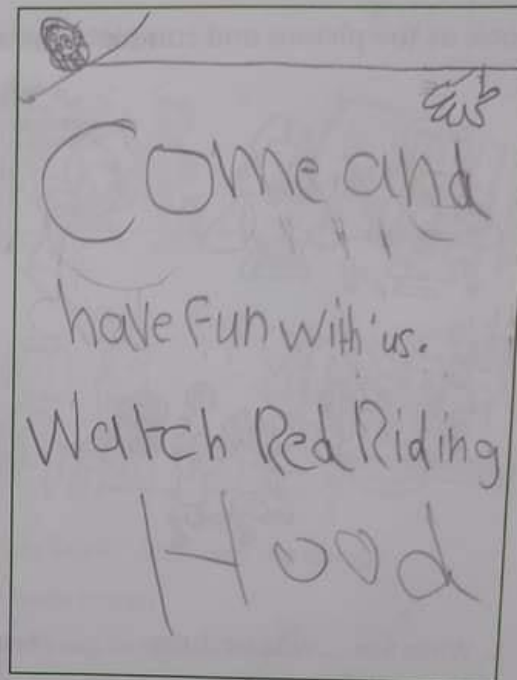 Come and
have fun with us.
Watch Red Riding
Hood